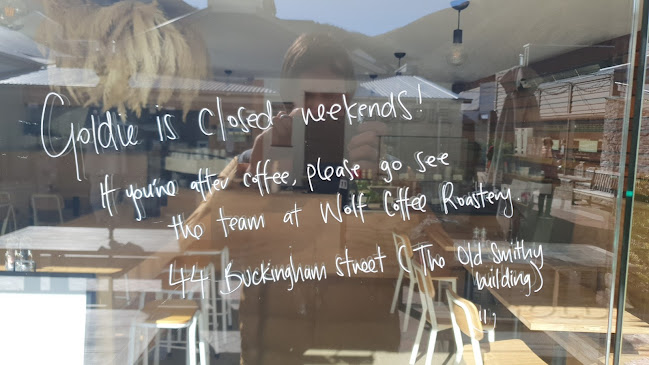 Goldie is closed weekends!
If you're after coffee, please go see
the team at Wolf Coffee Roastery
44 Buckingham Street (The Old Smithy
building)